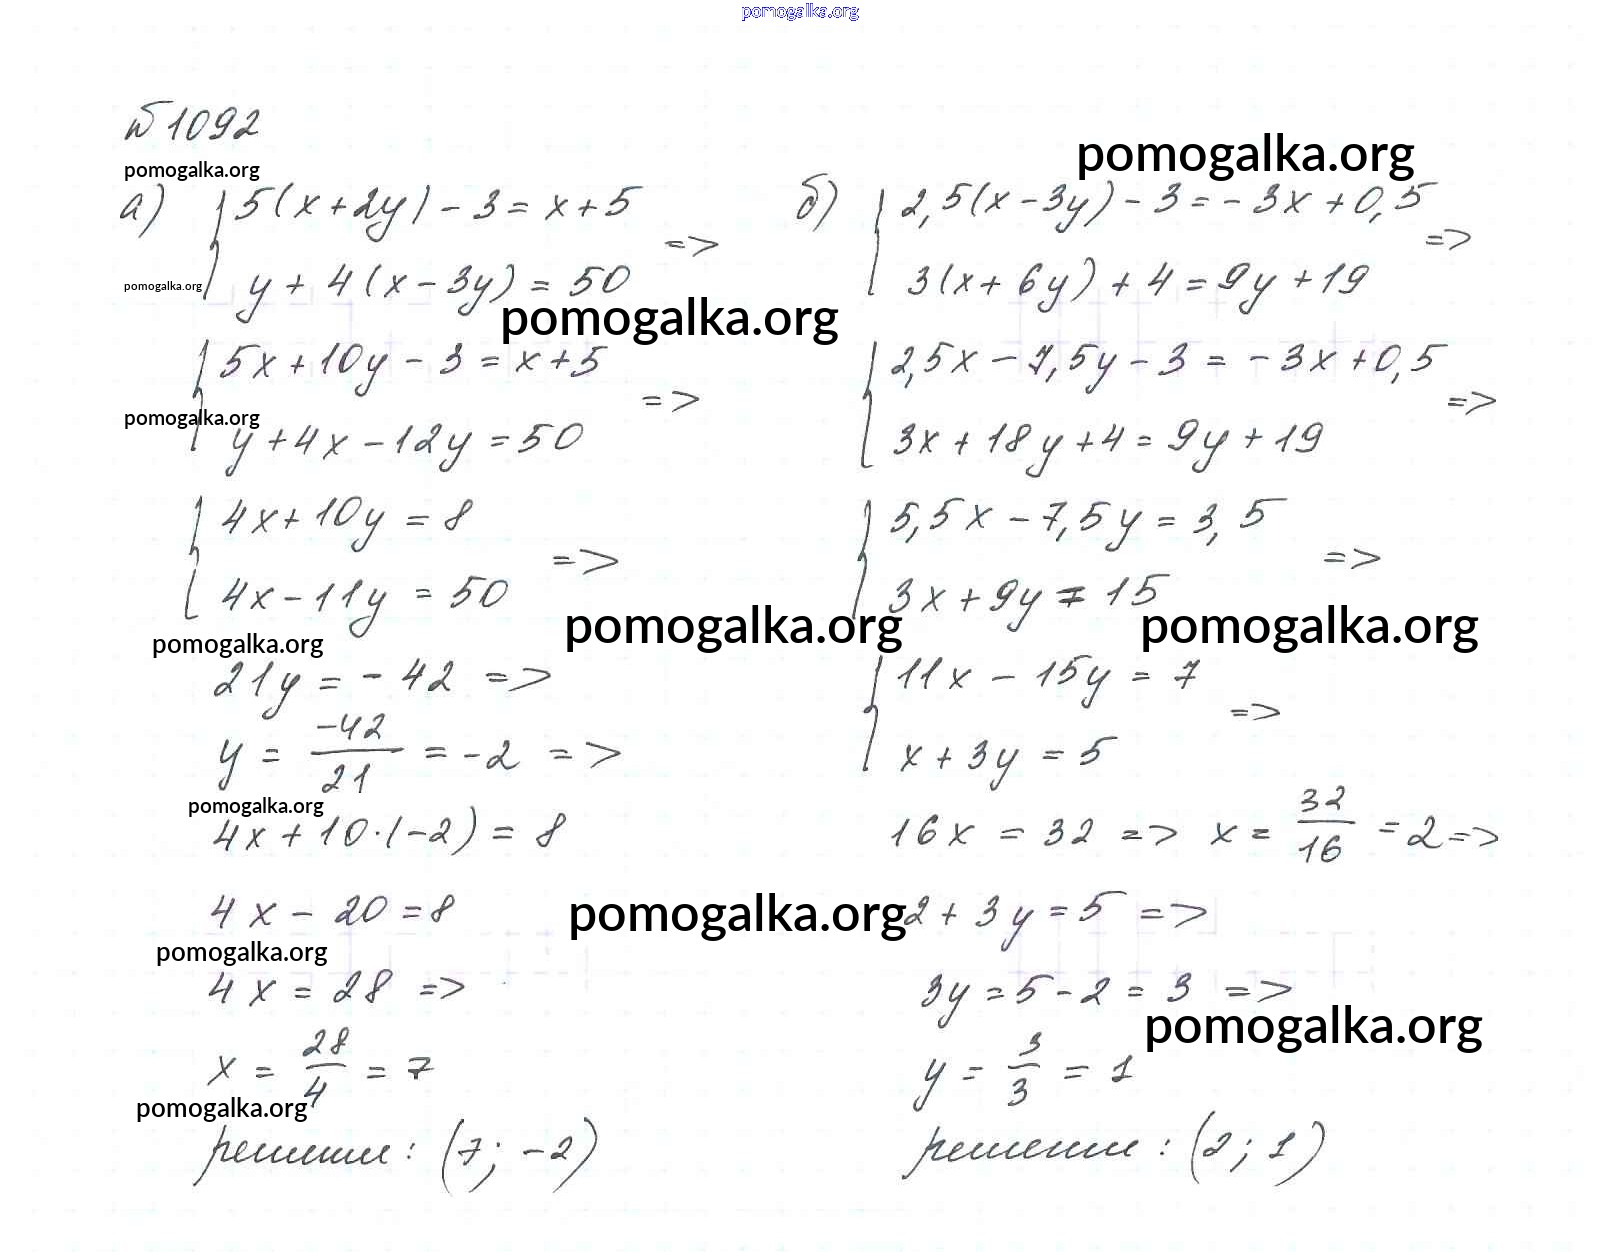 pomogalka.org
№1092
pomogalka.org
pomogalka.org
а) { 5(x+2y) - 3 = x+5
y + 4(x - 3y) = 50 =>
pomogalka.org
pomogalka.org
{ 5x + 10y - 3 = x+5
y + 4x - 12y = 50 =>
pomogalka.org
{ 4x + 10y = 8
4x - 11y = 50 =>
pomogalka.org
pomogalka.org
21y = - 42 =>
y = -42/21 = -2 =>
pomogalka.org
4x + 10·(-2) = 8
4x - 20 = 8
pomogalka.org
pomogalka.org
4x = 28 =>
x = 28/4 = 7
pomogalka.org
решение: (7; -2)
б) { 2,5(x - 3y) - 3 = - 3x + 0,5
3(x + 6y) + 4 = 9y + 19 =>
{ 2,5x - 7,5y - 3 = - 3x + 0,5
3x + 18y + 4 = 9y + 19 =>
{ 5,5x - 7,5y = 3,5
3x + 9y = 15 =>
pomogalka.org
{ 11x - 15y = 7
x + 3y = 5 =>
16x = 32 => x = 32/16 = 2 =>
2 + 3y = 5 =>
3y = 5 - 2 = 3 =>
pomogalka.org
y = 3/3 = 1
решение: (2; 1)